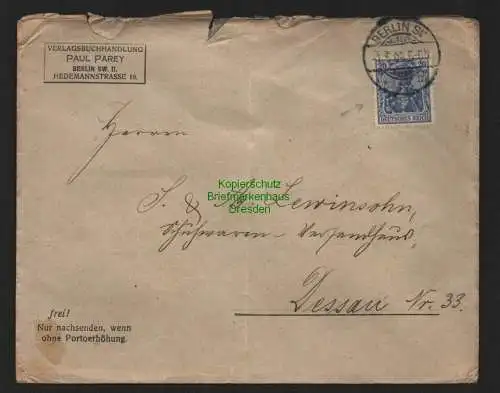 VERLAGSBUCHHANDLUNG
PAUL PAREY
BERLIN SW. 11.
HEDEMANNSTRASSE 10.
BERLIN
DEUTSCHES REICH
Herrn
Kopierschutz
Briefmarkenhaus
Dresden
S. & Lewinsohn,
Schuhwaren-Versandhaus,
Dessau Nr. 33.
frei!
Nur nachsenden, wenn
ohne Portoerhöhung.